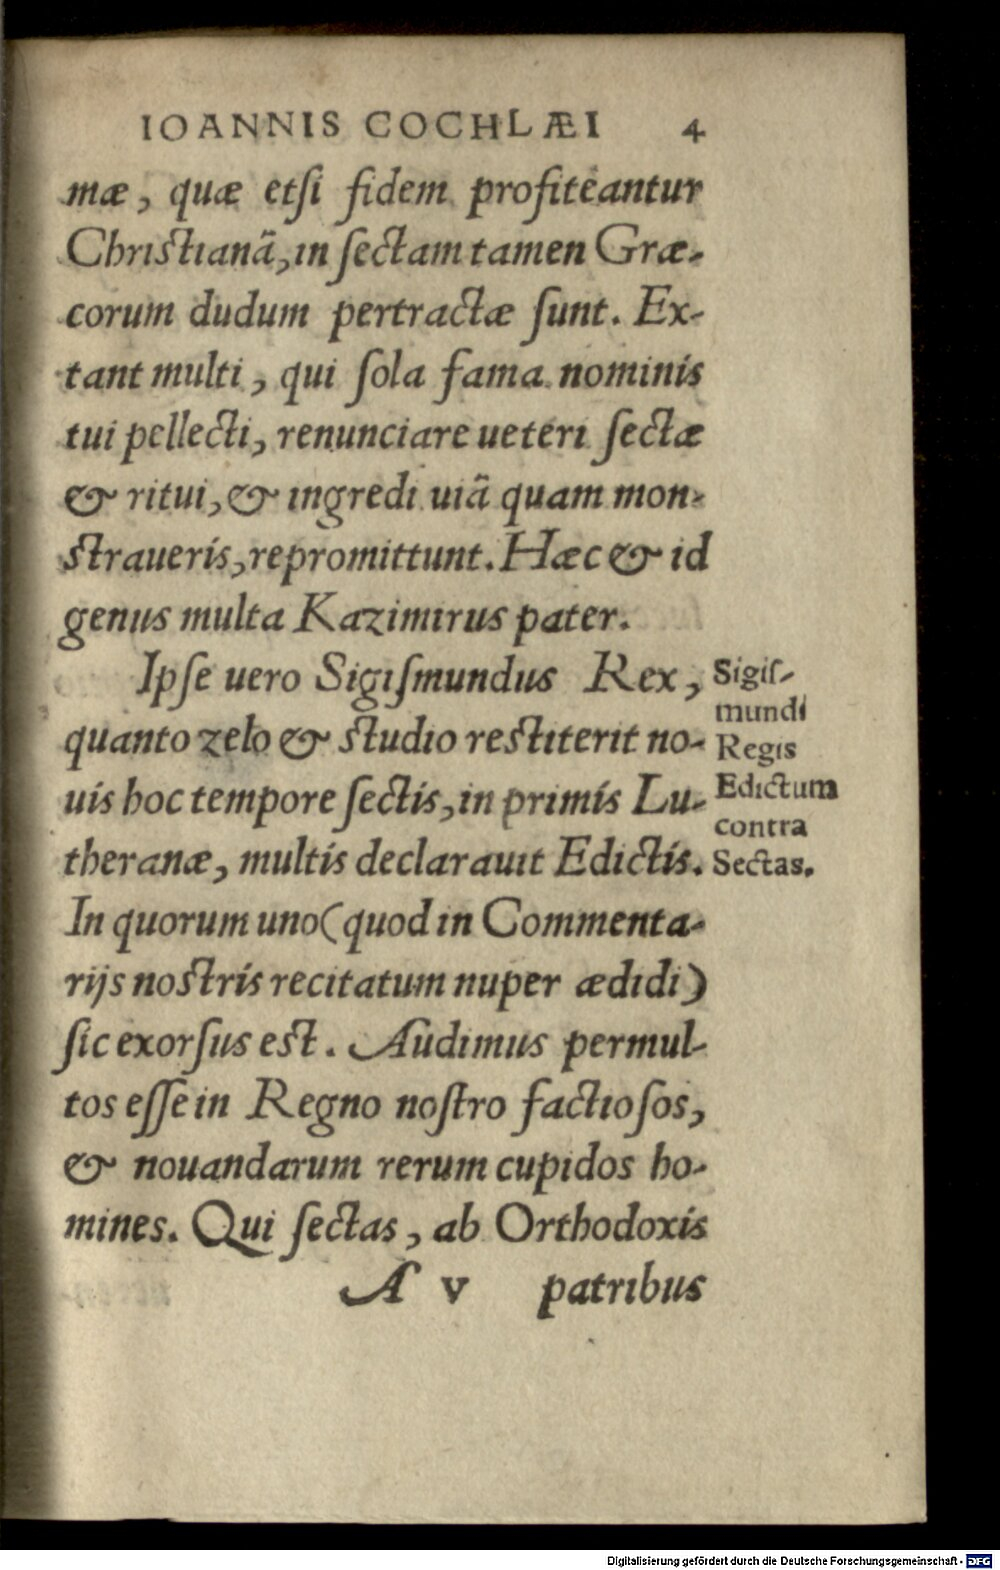 IOANNIS COCHLÆI 4
mæ, quæ etſi fidem profiteantur
Chriſtianã, in ſectam tamen Græ-
corum dudum pertractæ ſunt. Ex-
tant multi, qui ſola fama nominis
tui pellecti, renunciare ueteri ſectæ
& ritui, & ingredi uiã quam mon-
ſtraueris, repromittunt. Hæc & id
genus multa Kazimirus pater.
Ipſe uero Sigiſmundus Rex,
quanto zelo & ſtudio reſtiterit no-
uis hoc tempore ſectis, in primis Lu-
theranæ, multis declarauit Edictis.
In quorum uno (quod in Commenta-
rijs noſtris recitatum nuper ædidi)
ſic exorſus eſt. Audimus permul-
tos eſſe in Regno noſtro factioſos,
& nouandarum rerum cupidos ho-
mines. Qui ſectas, ab Orthodoxis
A v patribus
Sigiſ-
mundi
Regis
Edictum
contra
Sectas.
Digitalisierung gefördert durch die Deutsche Forschungsgemeinschaft - DFG